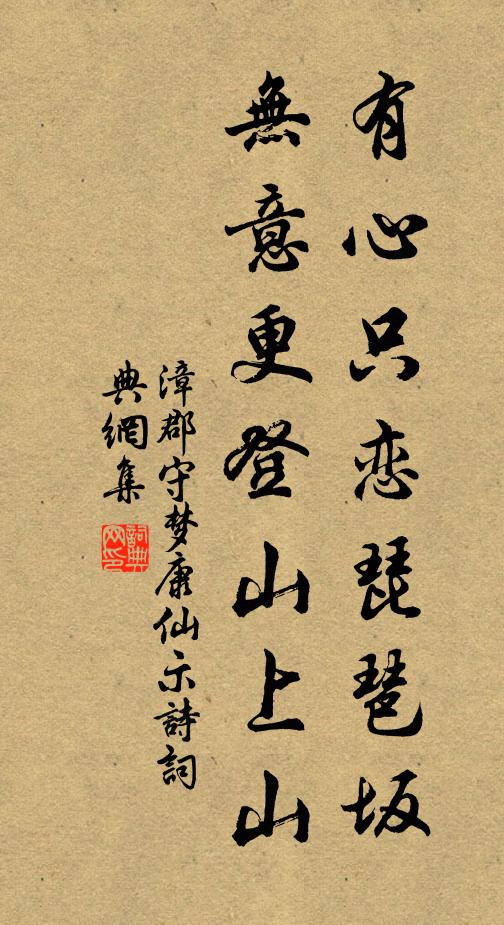 有心只恋琵琶坂
無意更登山上山
漳郡守梦康仙示詩詞
典網集
詞典
网印